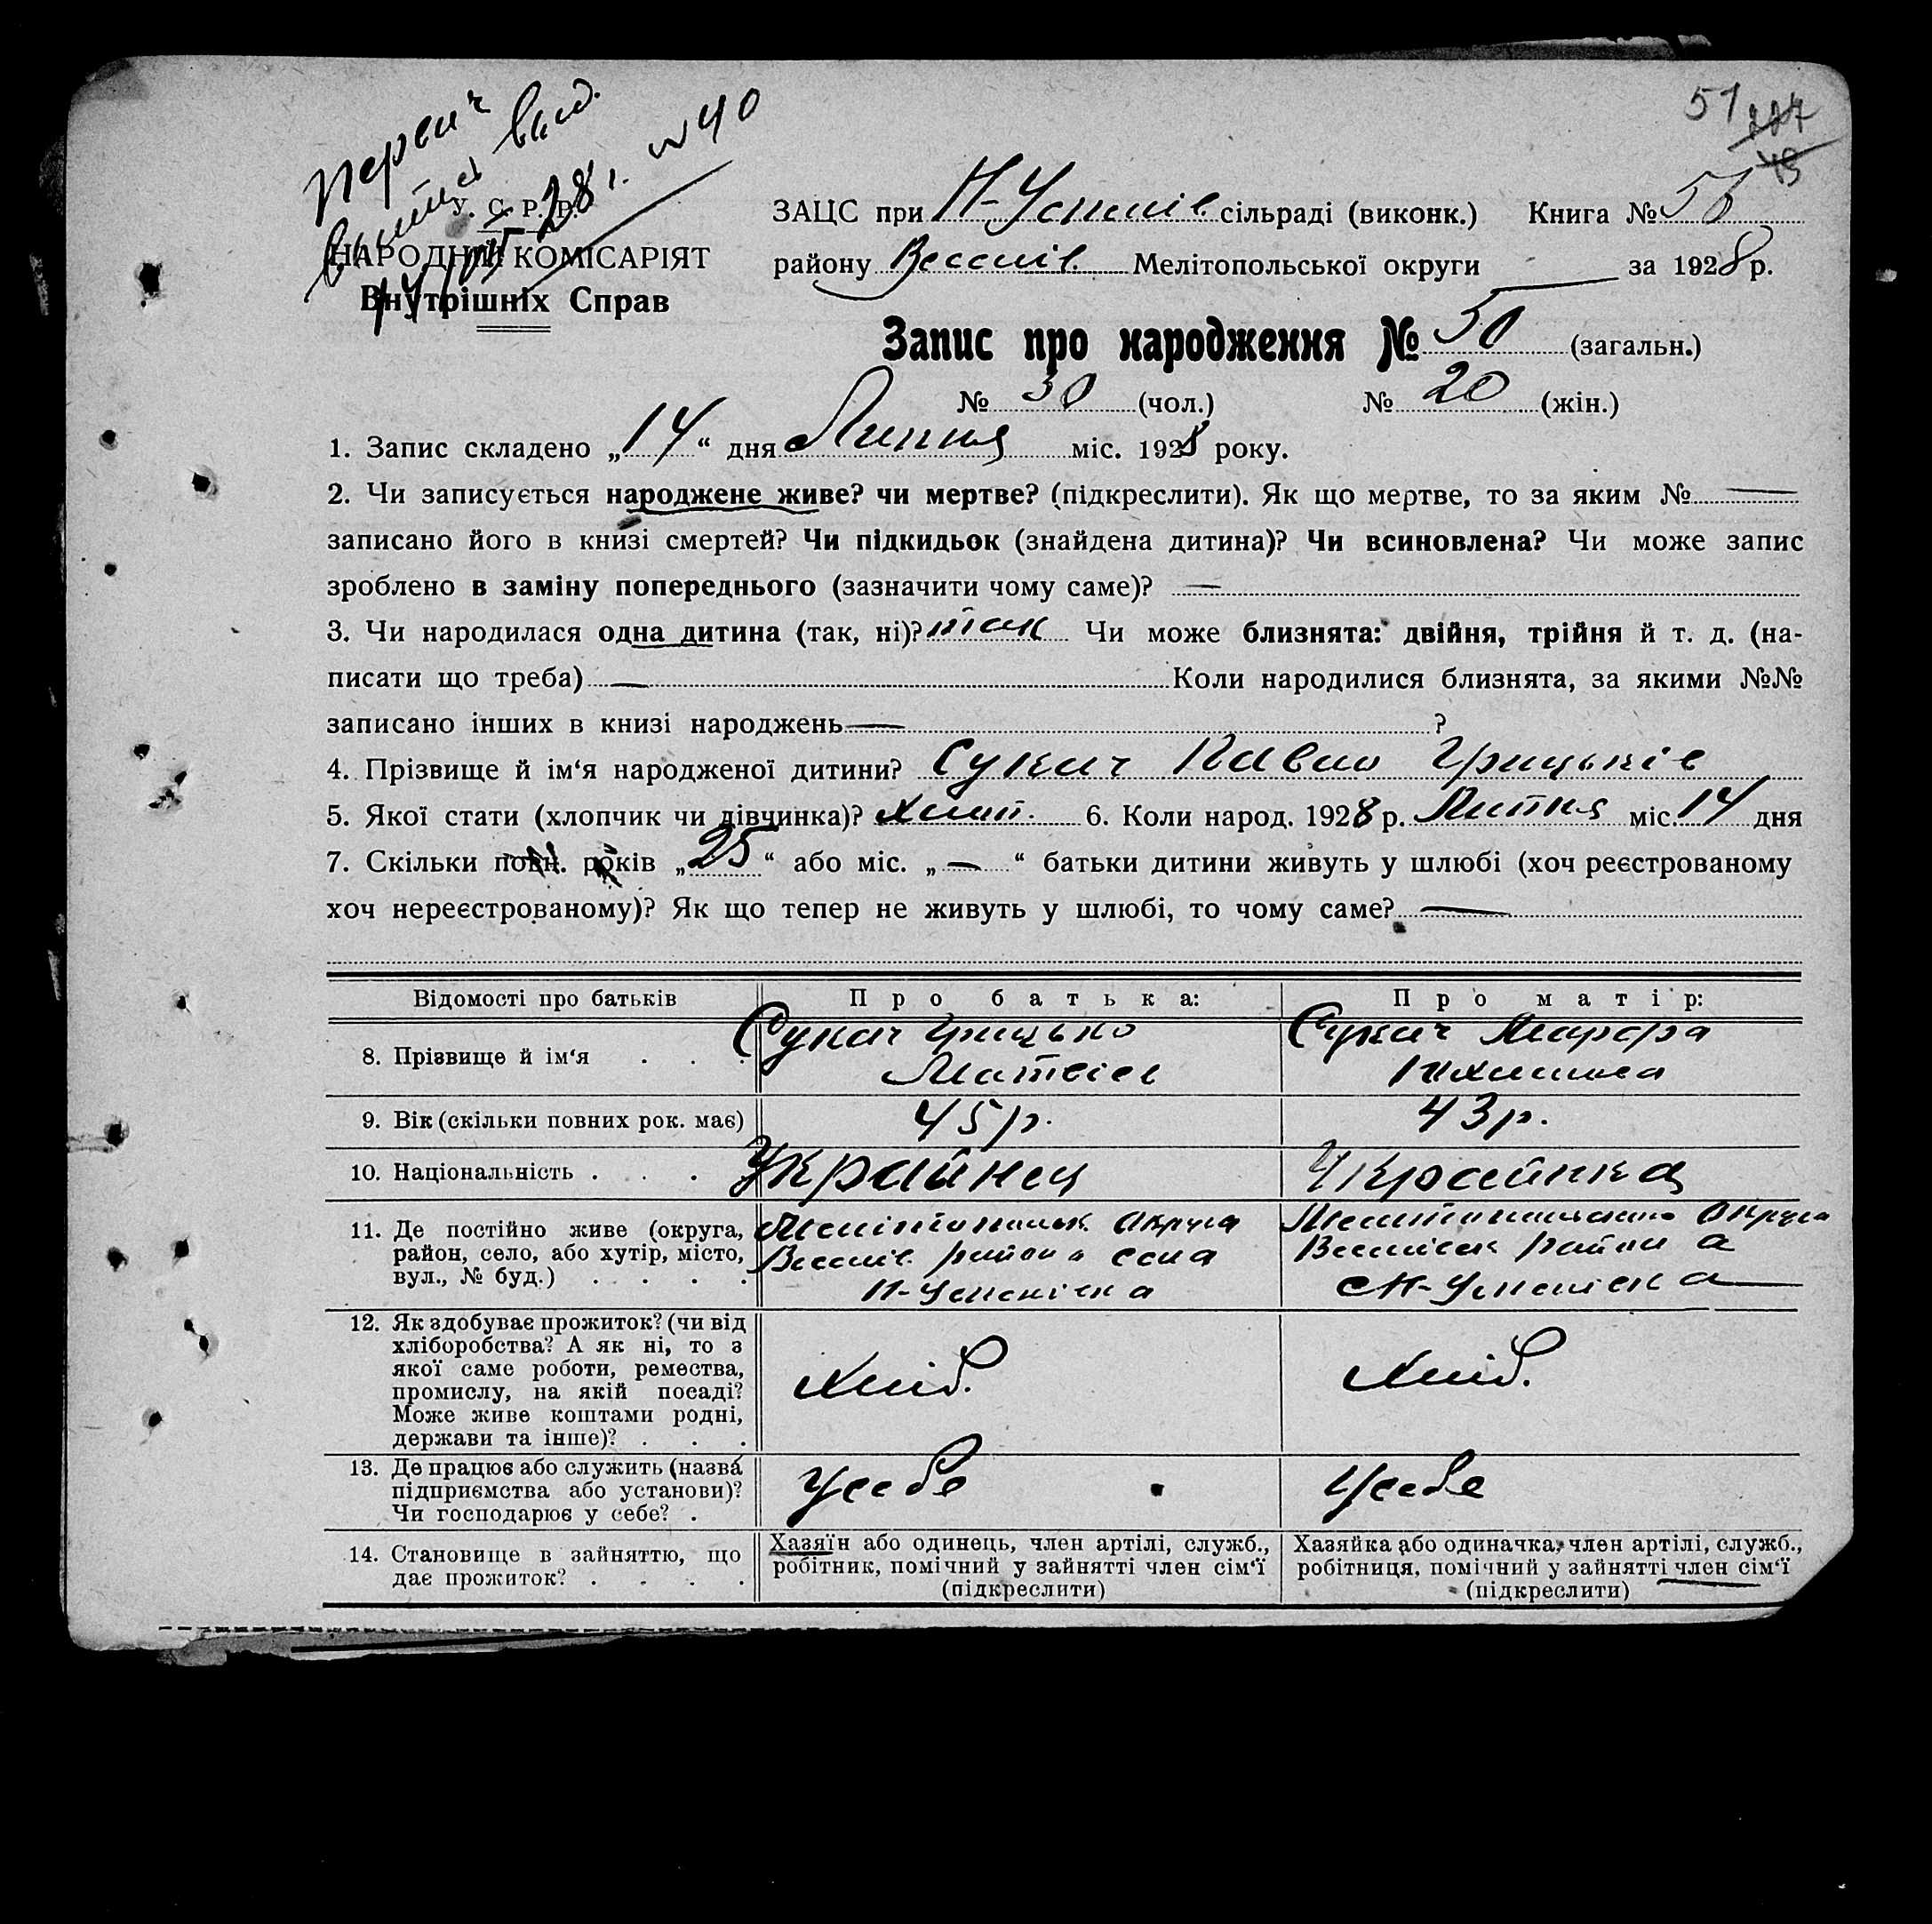 51
У. С. Р. Р.
НАРОДНІЙ КОМІСАРІЯТ
Внутрішніх Справ
28 г. № 40
ЗАЦС при Н-Успенів. сільраді (виконк.) Книга №
району Веселів. Мелітопольської округи за 1928 р.
Запис про народження № 50 (загальн.)
№ 30 (чол.) № 20 (жін.)
1. Запис складено „14“ дня Липня міс. 1928 року.
2. Чи записується народжене живе? чи мертве? (підкреслити). Як що мертве, то за яким № —
записано його в книзі смертей? Чи підкидьок (знайдена дитина)? Чи всиновлена? Чи може запис
зроблено в заміну попереднього (зазначити чому саме)? —
3. Чи народилася одна дитина (так, ні)? так Чи може близнята: двійня, трійня й т. д. (на-
писати що треба) — Коли народилися близнята, за якими №№
записано інших в книзі народжень — ?
4. Прізвище й ім‘я народженої дитини? Сукач Павло Грицьків
5. Якої стати (хлопчик чи дівчинка)? Хлоп. 6. Коли народ. 1928 р. Липня міс. 14 дня
7. Скільки повн. років „25“ або міс. „—“ батьки дитини живуть у шлюбі (хоч реєстрованому
хоч нереєстрованому)? Як що тепер не живуть у шлюбі, то чому саме? —
Відомості про батьків Про батька: Про матір:
8. Прізвище й ім‘я . . . Сукач Грицько Матвієв Сукач Марфа
9. Вік (скільки повних рок. має) 45 р. 43 р.
10. Національність . . . Українец Українка
11. Де постійно живе (округа,
район, село, або хутір, місто,
вул., № буд.) . . . .
Мелітопольськ округа
Веселів. район села
Н-Успенівка
Мелітопольська округа
Веселівськ района
с Н-Успенівка
12. Як здобуває прожиток? (чи від
хліборобства? А як ні, то з
якої саме роботи, ремества,
промислу, на якій посаді?
Може живе коштами родні,
держави та інше)? . . .
Хліб.
Хліб.
13. Де працює або служить (назва
підприємства або установи)?
Чи господарює у себе? .
У себе
У себе
14. Становище в зайняттю, що
дає прожиток? . . . .
Хазяїн або одинець, член артілі, служб.,
робітник, помічний у зайнятті член сім‘ї
(підкреслити)
Хазяйка або одиначка, член артілі, служб.,
робітниця, помічний у зайнятті член сім‘ї
(підкреслити)